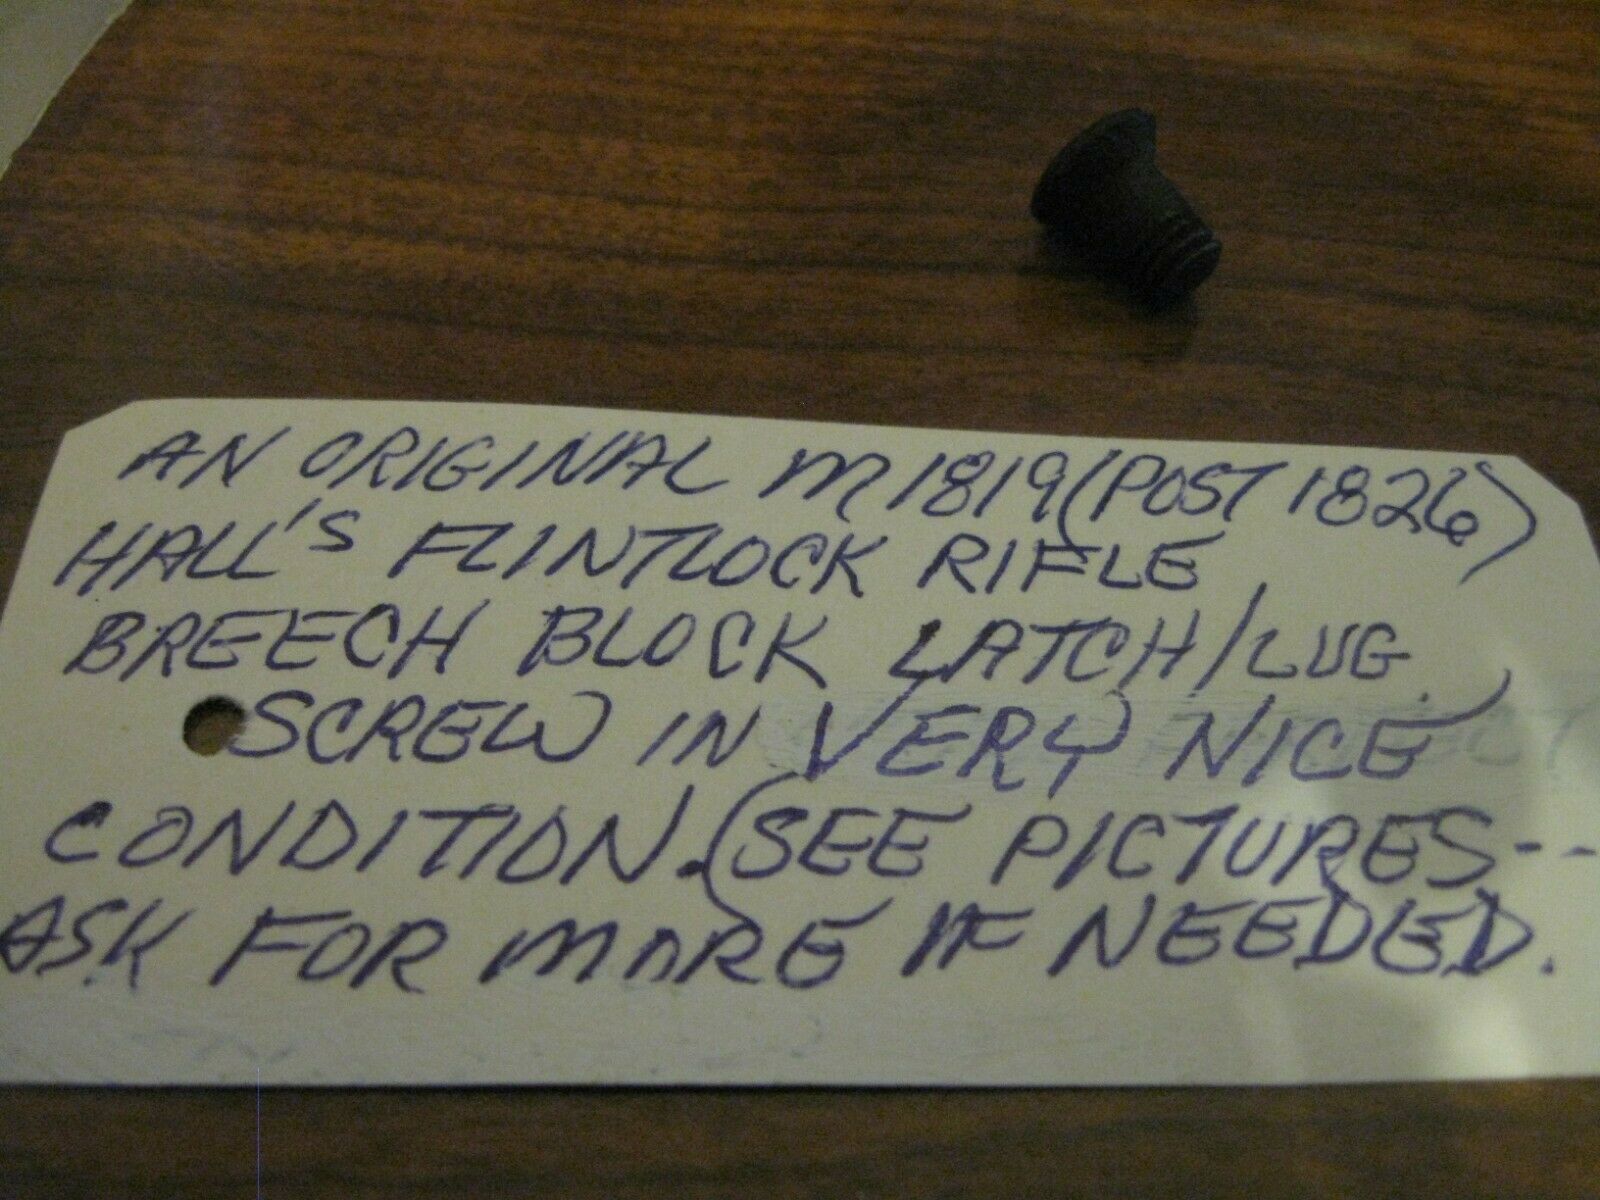 AN ORIGINAL M1819 (POST 1826)
HALL'S FLINTLOCK RIFLE
BREECH BLOCK LATCH/LUG
SCREW IN VERY NICE
CONDITION. (SEE PICTURES--
ASK FOR MORE IF NEEDED.